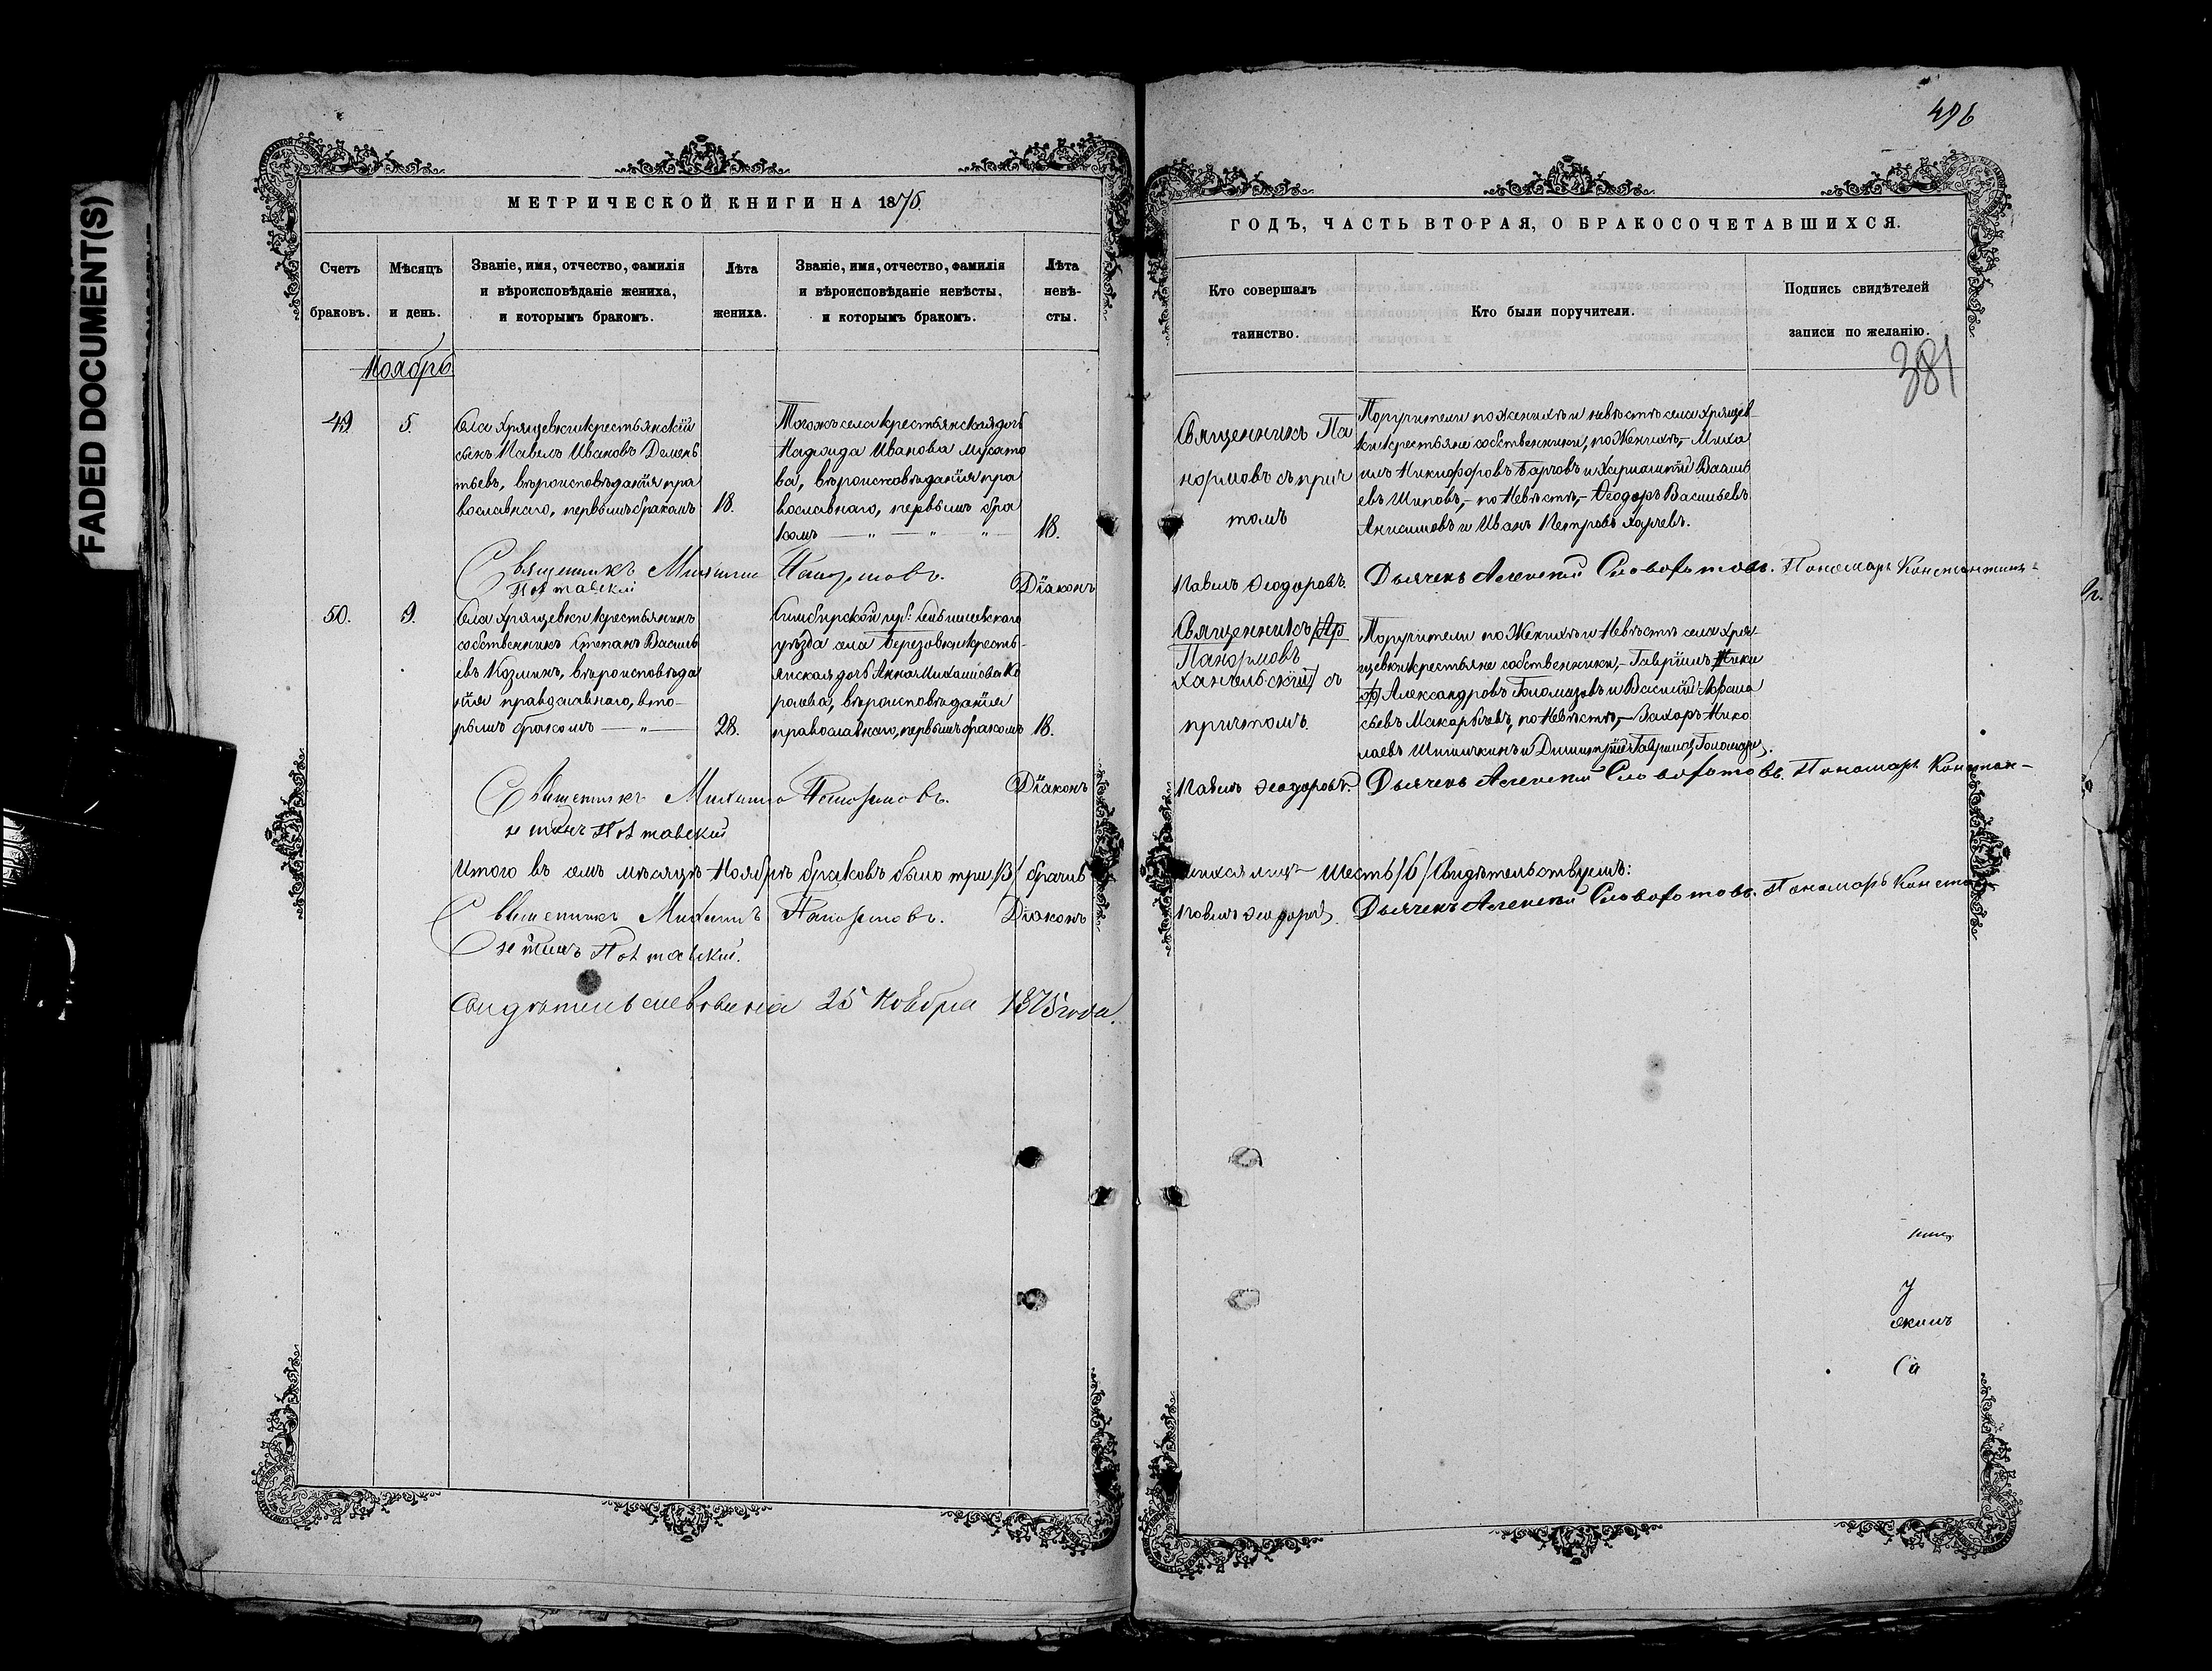 FADED DOCUMENT(S)
496
МЕТРИЧЕСКОЙ КНИГИ НА 1875.
Счетъ браковъ.
Мѣсяцъ и день.
Званіе, имя, отчество, фамилія
и вѣроисповѣданіе жениха,
и которымъ бракомъ.
Лѣта жениха.
Званіе, имя, отчество, фамилія
и вѣроисповѣданіе невѣсты,
и которымъ бракомъ.
Лѣта
невѣ-
сты.
Ноябрь
49. 5.
Села Хрящевки крестьянскій
сынъ Павелъ Ивановъ Демень
тьевъ, вѣроисповѣданія пра
вославнаго, первымъ бракомъ 18.
Тогожъ села крестьянская дочь
Надежда Иванова
ва, вѣроисповѣданія пра
вославнаго, первымъ бра
комъ — „ — „ „ — 18.
Священникъ Михаилъ Панормовъ. Діаконъ
Полтавскій
50. 9.
Села Хрящевки крестьянинъ
собственникъ Степанъ Василь
евъ Козминъ, вѣроисповѣда
нія православнаго, вто-
рымъ бракомъ — „ — 28.
Симбирской губ.
уѣзда села Березовки кресть-
янская дочь Анна Михайлова Ко
ролева, вѣроисповѣданія
православнаго, первымъ бракомъ 18.
Священникъ Михаилъ Панормовъ. Діаконъ
Полтавскій
Итого въ семъ мѣсяцѣ Ноябрѣ браковъ было три /3/ брачив
Священникъ Михаилъ Панормовъ. Діаконъ
Полтавскій.
25 Ноября 1875 года.
ГОДЪ, ЧАСТЬ ВТОРАЯ, О БРАКОСОЧЕТАВШИХСЯ.
Кто совершалъ
таинство.
Кто были поручители.
Подпись свидѣтелей
записи по желанію.
381
Священникъ Па
нормовъ съ прич
томъ
Поручители по женихѣ и невѣстѣ села Хрящев-
ки крестьяне собственники, по Женихѣ,- Миха
илъ Никифоровъ и Василь
евъ Шиповъ,- по Невѣстѣ,- Ѳеодоръ Васильевъ
Анисимовъ и Иванъ Петровъ
Павелъ Ѳеодоровъ. Дьячекъ Алексѣй Словохотовъ. Пономарь Константинъ
Священникъ Ар
Панормовъ
хангельскій съ
причтомъ.
Поручители по Женихѣ и Невѣстѣ села Хря-
щевки крестьяне собственники,- Гавріилъ
Александровъ Голомазовъ и Василій Аѳана
сьевъ Макарычевъ, по Невѣстѣ,- Захаръ Нико
лаевъ и Димитрій
Павелъ Ѳеодоровъ. Дьячекъ Алексѣй Словохотовъ. Пономарь Констан-
шихся лицъ шесть /6/ Свидѣтельствуемъ:
Павелъ Ѳеодоровъ. Дьячекъ Алексѣй Словохотовъ. Пономарь